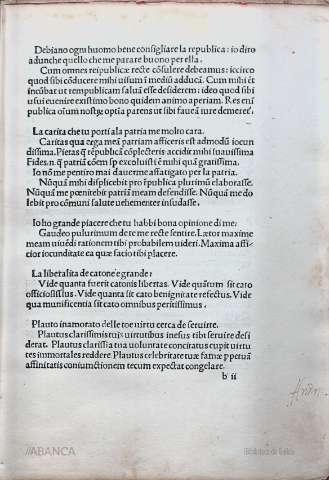 Debiano ogni huomo bene consigliare la republica: io diro
adunche quello che me parare buono per ella.
Cum omnes reipublicæ recte cõsulere debeamus: iccirco
quod sibi cõducere mihi uisum ĩ mediũ adducã. Cum mihi ẽt
incũbat ut rempublicam saluã esse desiderem: ideo quod sibi
usui euenire existimo bono quidem animo aperiam. Res eni
publica oĩum nostrũ optĩa parens ut sibi faueã iure demeret.
La carita che tu porti ala patria me molto cara.
Caritas qua erga meã patriam afficeris est admodũ iocun
dissima. Pietas q̃ rẽpublicã cõplecteris accidit mihi suauissima
Fides.n.q̃ patriã cõem sp excoluisti ẽ mihi quã gratissima.
Io nõ me pentiro mai dauerme affatigato per la patria.
Nũquã mihi displicebit pro rpublica plurimũ elaborasse.
Nũquã me pœnitebit patriã meam defendisse. Nũquã me do
lebit pro cõmuni salute uehementer insudasse.
Io ho grande piacere che tu habbi bona opinione di me:
Gaudeo pulurimum de te me recte sentire. Lætor maxime
meam uiuẽdi rationem tibi probabilem uideri. Maxima affi
cior iocunditate ea quæ facio tibi placere.
La liberalita de catone e grande:
Vide quanta fuerit catonis libertas. Vide quãtum sit cato
officiosissimus. Vide quanta sit cato benignitate refectus. Vide
qua munificentia sit cato omnibus peritissimus.
Plauto inamorato delle toe uirtu cerca de seruirte.
Plautus clarissimis tuis uirtutibus inesus tibi seruire desi
derat. Plautus clarissĩa tua uoluntate concitatus cupit uirtu
tes immortales reddere Plautus celebritate tuæ famæ ppetuã
affinitatis coniunctionem tecum expectat congelare.
b ii
//ABANCA
Biblioteca de Galicia